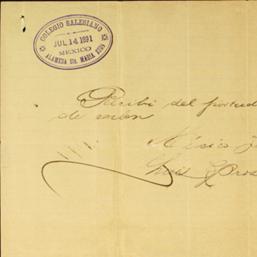 COLEGIO SALESIANO
JUL 14 1891
MEXICO
ALAMEDA STA. MARIA
Recibí del
de
México J
Luis G